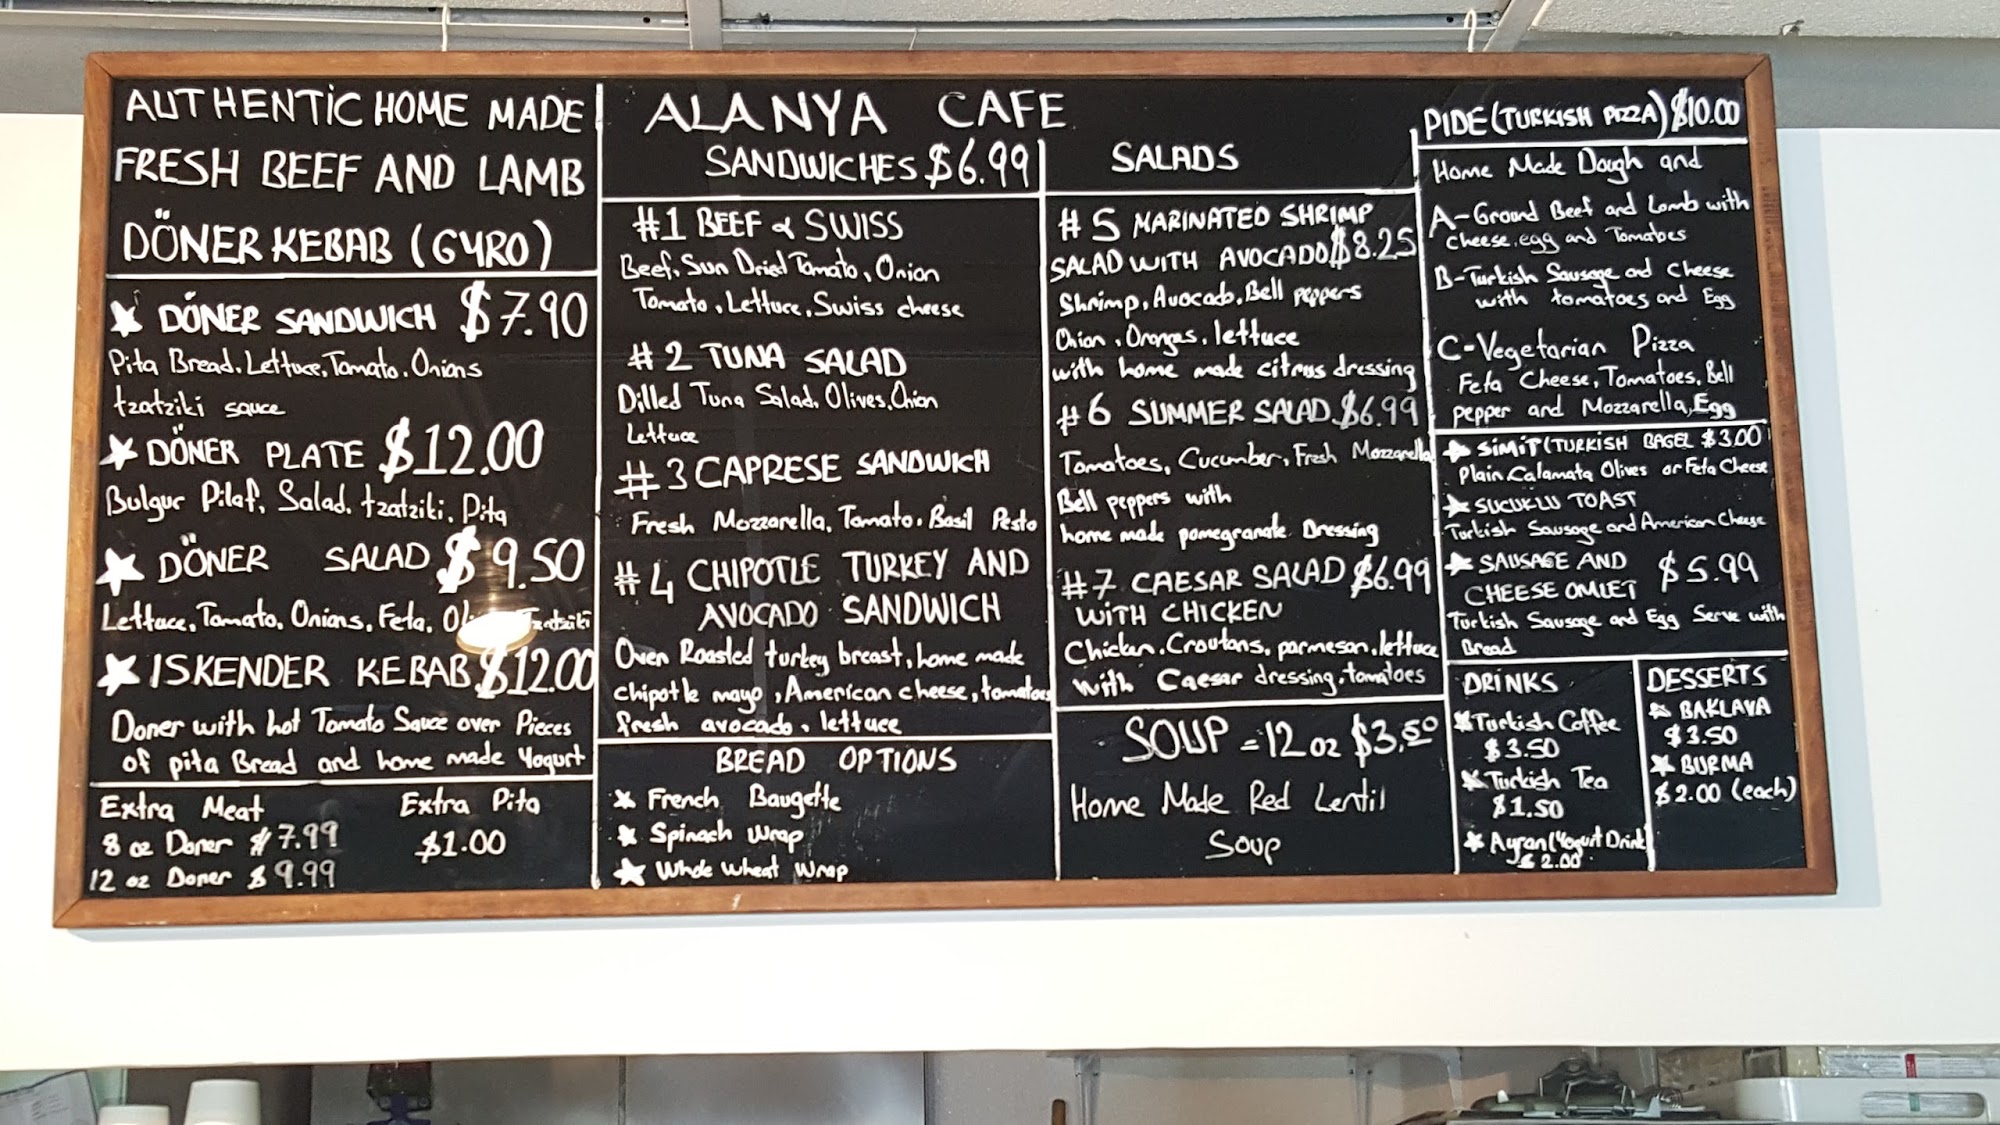 AUTHENTİC HOME MADE
FRESH BEEF AND LAMB
DÖNER KEBAB (GYRO)
DÖNER SANDWICH $7.90
Pita Bread, Lettuce, Tomato, Onions
tzatziki sauce
DÖNER PLATE $12.00
Bulgur Pilaf, Salad, tzatziki, Pita
DÖNER SALAD $9.50
Lettuce, Tomato, Onions, Feta, Tzatziki
ISKENDER KEBAB $12.00
Doner with hot Tomato Sauce over Pieces
of pita Bread and home made Yogurt
Extra Meat
8 oz Doner $7.99
12 oz Doner $9.99
Extra Pita
$1.00
ALANYA CAFE
SANDWICHES $6.99
#1 BEEF & SWISS
Beef, Sun Dried Tomato, Onion
Tomato, Lettuce, Swiss cheese
#2 TUNA SALAD
Dilled Tuna Salad, Olives, Onion
Lettuce
#3 CAPRESE SANDWICH
Fresh Mozzarella, Tomato, Basil Pesto
#4 CHIPOTLE TURKEY AND
AVOCADO SANDWICH
Oven Roasted turkey breast, home made
chipotle mayo, American cheese, tomatoes
fresh avocado, lettuce
BREAD OPTIONS
French Baugette
Spinach Wrap
Whole Wheat Wrap
SALADS
#5 MARINATED SHRIMP
SALAD WITH AVOCADO $8.25
Shrimp, Avocado, Bell peppers
Onion, Oranges, lettuce
with home made citrus dressing
#6 SUMMER SALAD $6.99
Tomatoes, Cucumber, Fresh Mozzarella
Bell peppers with
home made pomegranate Dressing
#7 CAESAR SALAD $6.99
WITH CHICKEN
Chicken, Croutans, parmesan, lettuce
with Caesar dressing, tomatoes
SOUP = 12 oz $3.50
Home Made Red Lentil
Soup
PIDE (TURKISH PIZZA) $10.00
Home Made Dough and
A- Ground Beef and Lamb with
cheese, egg and Tomatoes
B- Turkish Sausage and cheese
with tomatoes and Egg
C- Vegetarian Pizza
Feta Cheese, Tomatoes, Bell
pepper and Mozzarella, Egg
SİMİT (TURKISH BAGEL $3.00
Plain, Calamata Olives or Feta Cheese
SUCUKLU TOAST
Turkish Sausage and American Cheese
SAUSAGE AND
CHEESE OMLET $5.99
Turkish Sausage and Egg Serve with
Bread
DRINKS
Turkish Coffee
$3.50
Turkish Tea
$1.50
Ayran (Yogurt Drink)
$2.00
DESSERTS
BAKLAVA
$3.50
BURMA
$2.00 (each)